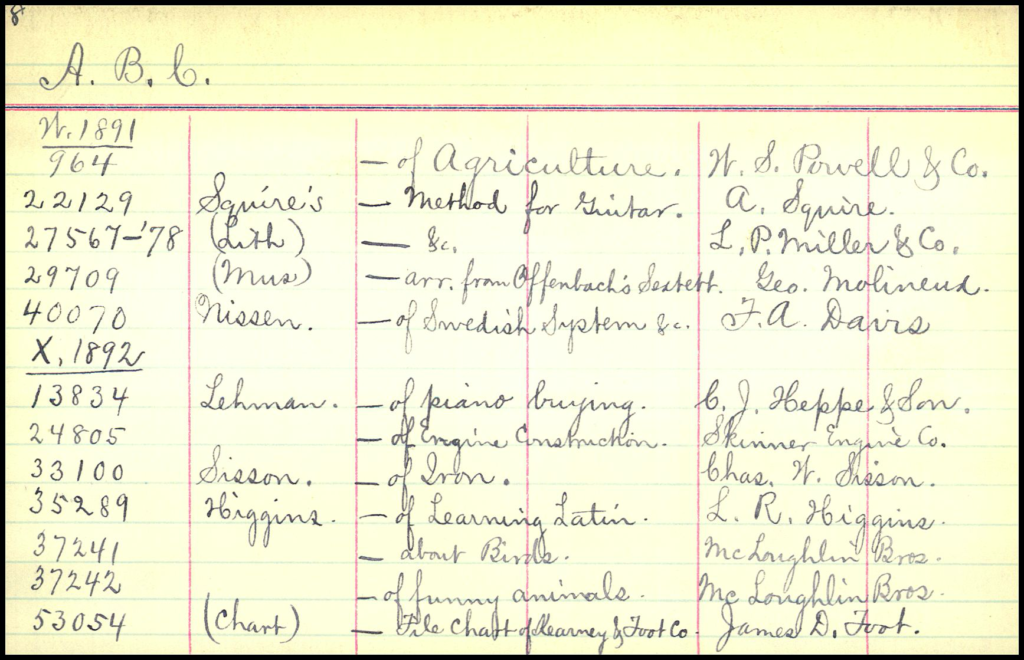 8
A. B. C.
W. 1891
964 — of Agriculture. W. S. Powell & Co.
22129 Squire's — Method for Guitar. A. Squire.
27567-'78 (Lith) — &c. L. P. Miller & Co.
29709 (Mus) — arr. from Offenbach's Sextett. Geo. Molineux.
40070 Nissen. — of Swedish System &c. F. A. Davis
X, 1892
13834 Lehman. — of piano buying. C. J. Heppe & Son.
24805 — of Engine Construction. Skinner Engine Co.
33100 Sisson. — of Iron. Chas. W. Sisson.
35289 Higgins. — of Learning Latin. L. R. Higgins.
37241 — about Birds. McLoughlin Bros.
37242 — of funny animals. McLoughlin Bros.
53054 (Chart) — File Chart of Kearney & Foot Co. James D. Foot.